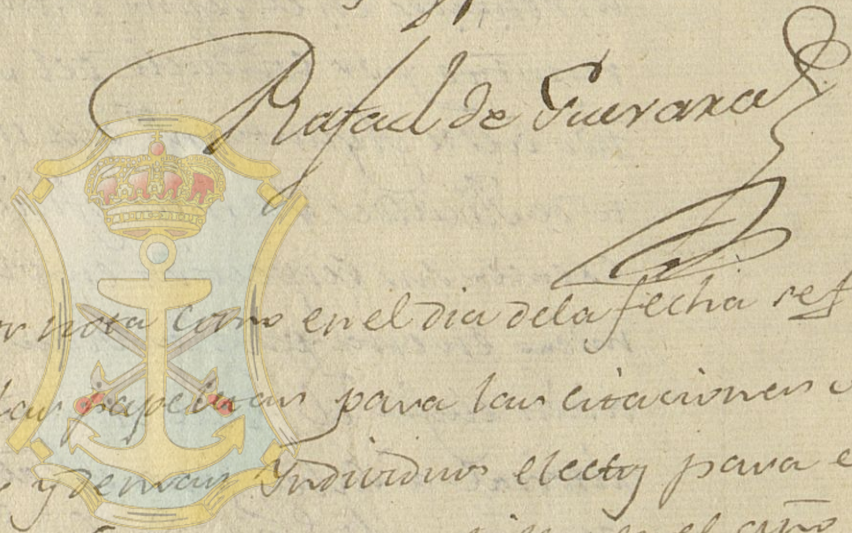 Rafael de Guevara
nota como en el dia dela fecha
las papeletas para las citaciones
y demas Yndividuos electos para
el año